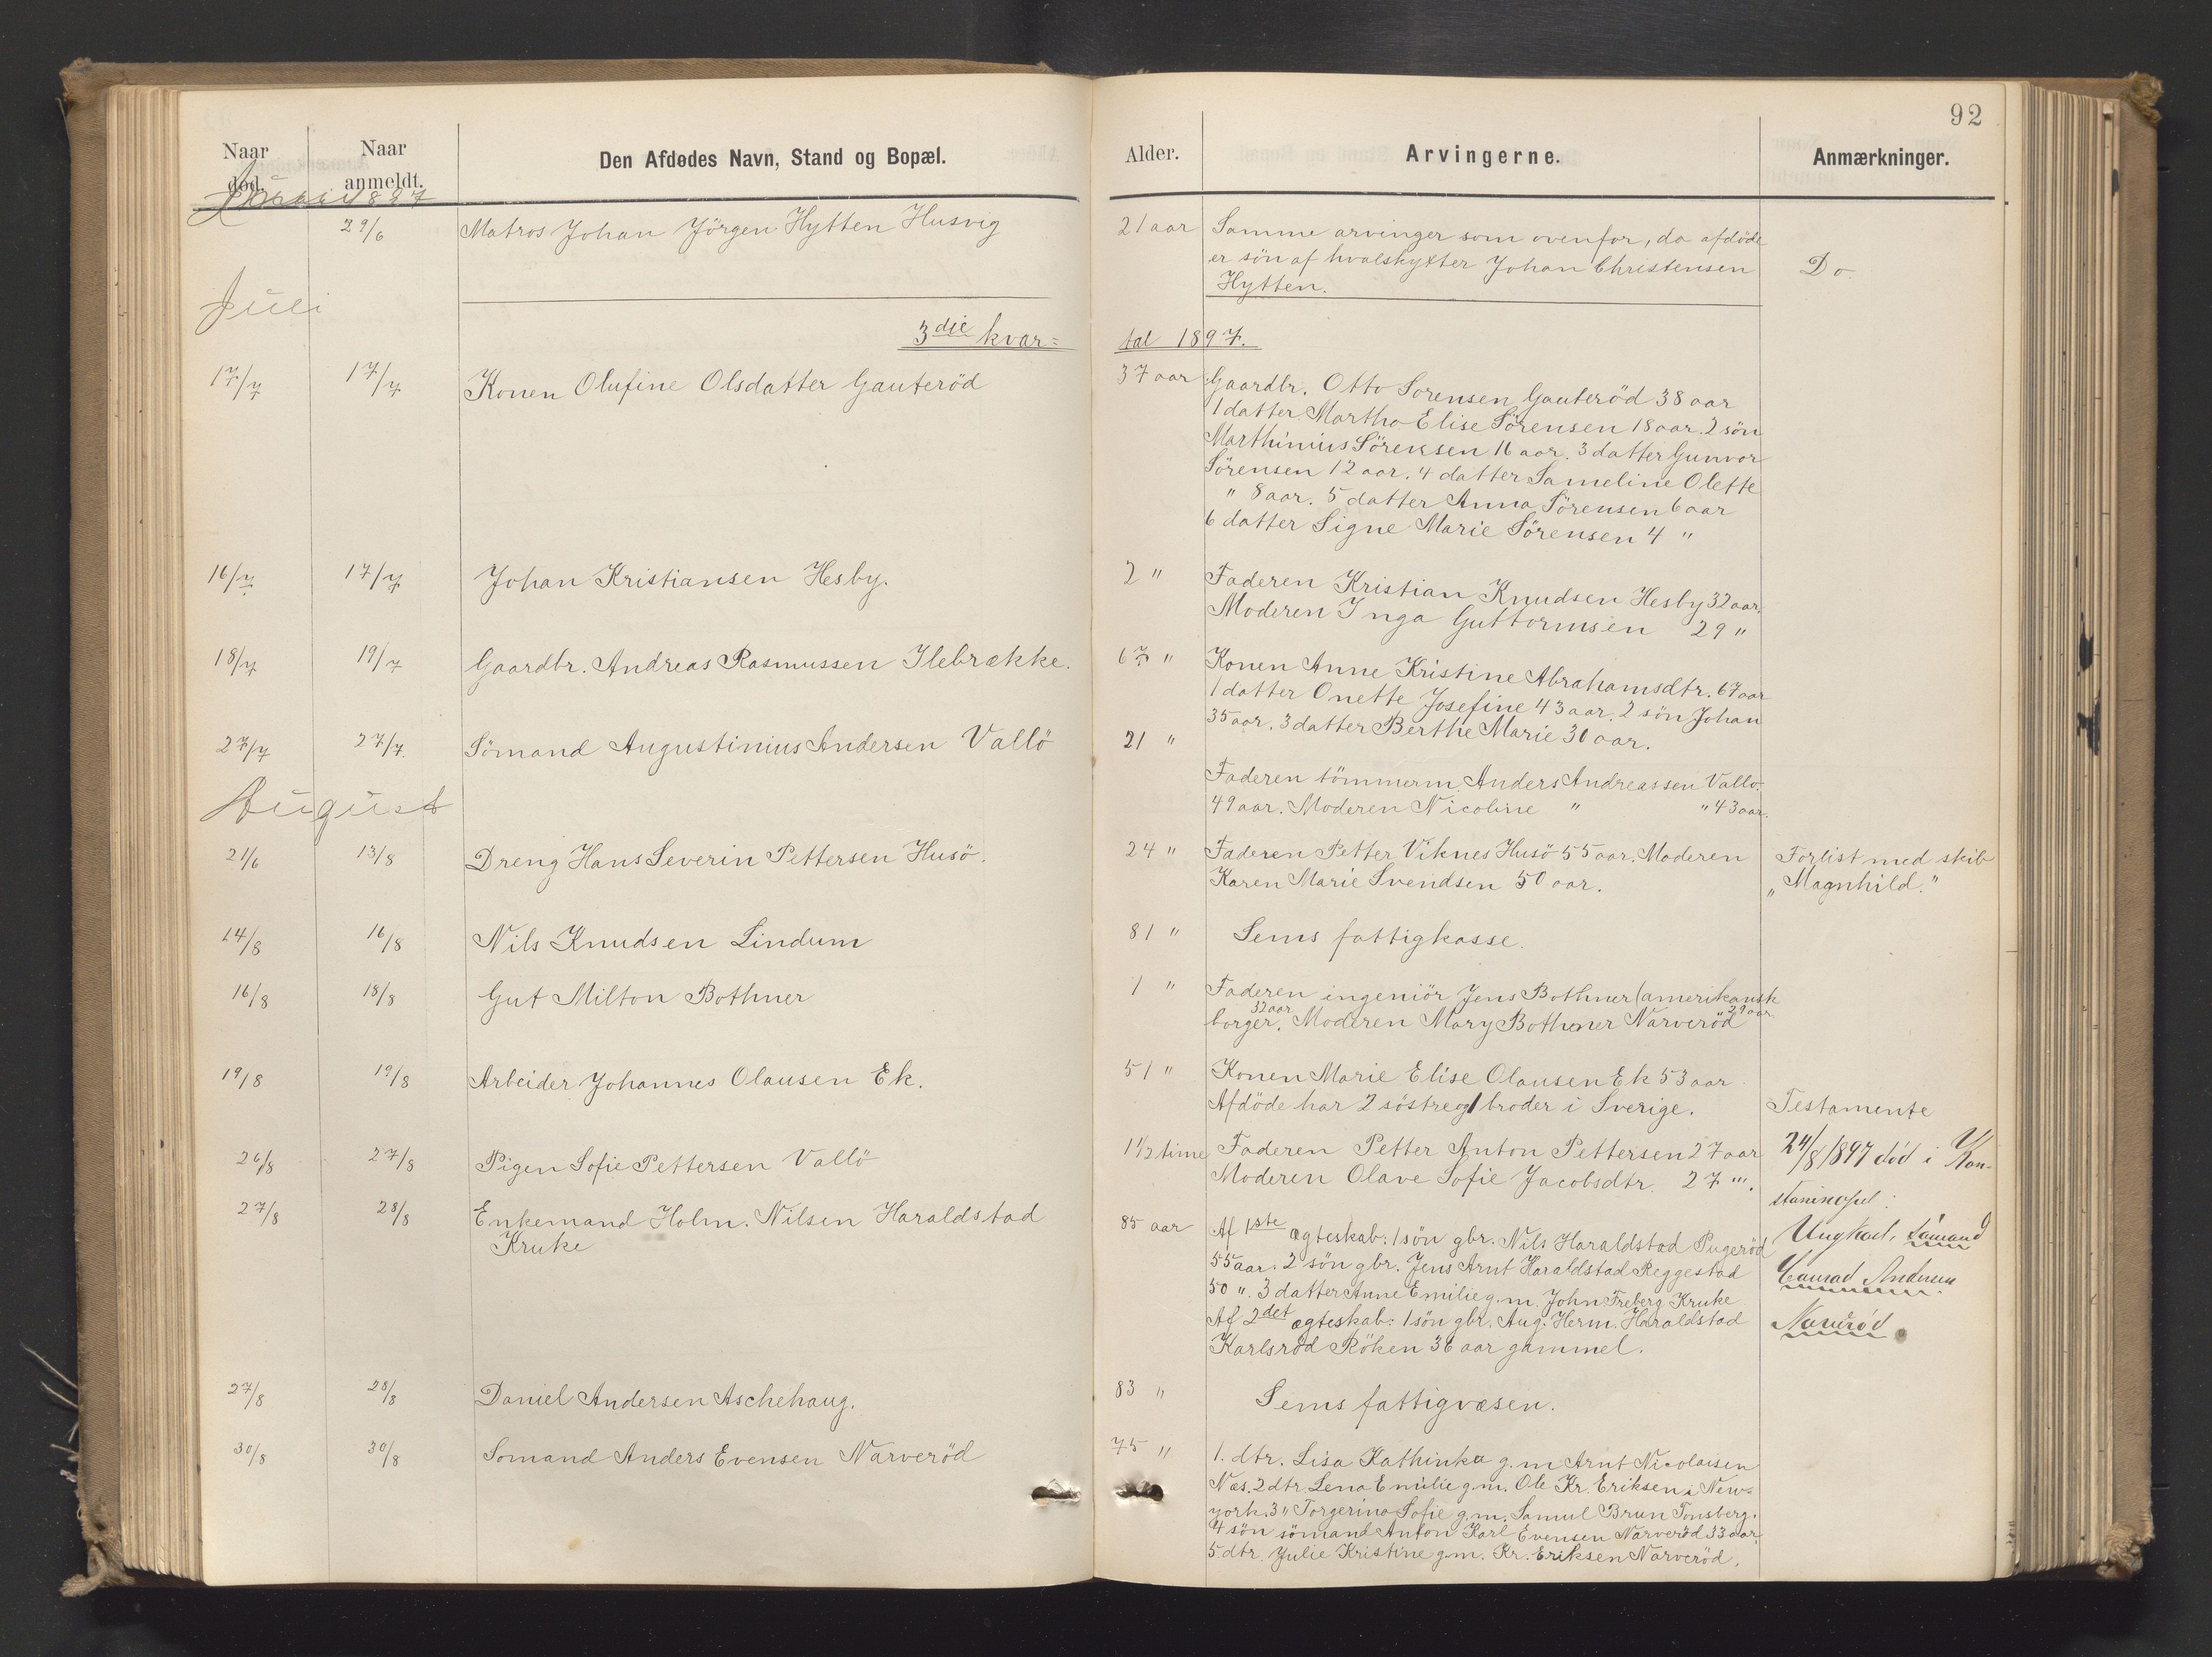 92
Naar død.
Naar anmeldt.
Den Afdødes Navn, Stand og Bopæl.
Alder.
Arvingerne.
Anmærkninger.
29/6 Matros Johan Jörgen Hytten Husvig 21 aar Samme arvinger som ovenfor, da afdöde
er sön af hvalskytter Johan Christensen Do.
Hytten.
Juli
3die kvar=
tal 1897.
17/7 17/7 Konen Olufine Olsdatter Gauteröd 37 aar Gaardbr. Otto Sorensen Gauteröd 38 aar
1 datter Martha Elise Sörensen 18 aar. 2 sön
Marthinius Sörensen 16 aar. 3 datter Gunvor
Sörensen 12 aar. 4 datter Sameline Olette
" 8 aar. 5 datter Anna Sörensen 6 aar
6 datter Signe Marie Sörensen 4 "
16/7 17/7 Johan Kristiansen Hesby. 2 " Faderen Kristian Knudsen Hesby 32 aar.
Moderen Inga Guttormsen 29 "
18/7 19/7 Gaardbr. Andreas Rasmussen Ilebrække. 67 " Konen Anne Kristine Abrahamsdtr. 67 aar
1 datter Onette Josefine 43 aar. 2 sön Johan
35 aar. 3 datter Berthe Marie 30 aar.
27/7 27/7. Sömand Augustinius Andersen Vallö 21 "
Faderen tömmerm. Anders Andreassen Vallo.
49 aar. Moderen Nicoline " " 43 aar.
August
21/6 13/8 Dreng Hans Severin Pettersen Husö. 24 " Faderen Petter Viknes Husö 55 aar. Moderen Forlist med skib
Karen Marie Svendsen 50 aar. „Magnhild."
14/8 16/8 Nils Knudsen Lindum 81 " Sems fattigkasse.
16/8 18/8 Gut Milton Bothner 1 " Faderen ingeniör Jens Bothner (amerikansk
32 aar 29 aar.
borger. Moderen Mary Bothner Narveröd
19/8 19/8 Arbeider Johannes Olausen Ek. 51 " Konen Marie Elise Olausen Ek 53 aar
Afdöde har 2 söstre og 1 broder i Sverige. Testamente
26/8 27/8 Pigen Sofie Pettersen Vallö 1 1/2 time Faderen Petter Anton Pettersen 27 aar
Moderen Olave Sofie Jacobsdtr. 27 "'.
24/8 1897 död i Kon-
staninopel:
Ungkarl, Sömand
Conrad Andersen
Narveröd
27/8 28/8 Enkemand Holm. Nilsen Haraldstad 85 aar Af 1ste ægteskab: 1 sön gbr. Nils Haraldstad Pugeröd
Kruke
55 aar. 2 sön gbr. Jens Arnt Haraldstad Reggestad
50 ". 3 datter Anne Emilie g.m. John Freberg Kruke
Af 2det ægteskab: 1 sön gbr. Aug. Herm. Haraldstad
Karlsröd Röken 36 aar gammel.
27/8 28/8 Daniel Andersen Aschehaug. 83 " Sems fattigvæsen.
30/8 30/8 Somand Anders Evensen Narveröd 75 " 1. dtr. Lisa Kathinka g.m Arnt Nicolaisen
Næs. 2 dtr. Lena Emilie g.m. Ole Kr. Eriksen i New=
york. 3 " Torgerina Sofie g.m. Samul Brun Tonsberg.
4 sön sömand Anton Karl Evensen Narveröd 33 aar.
5. dtr. Julie Kristine g.m. Kr. Eriksen Narveröd.